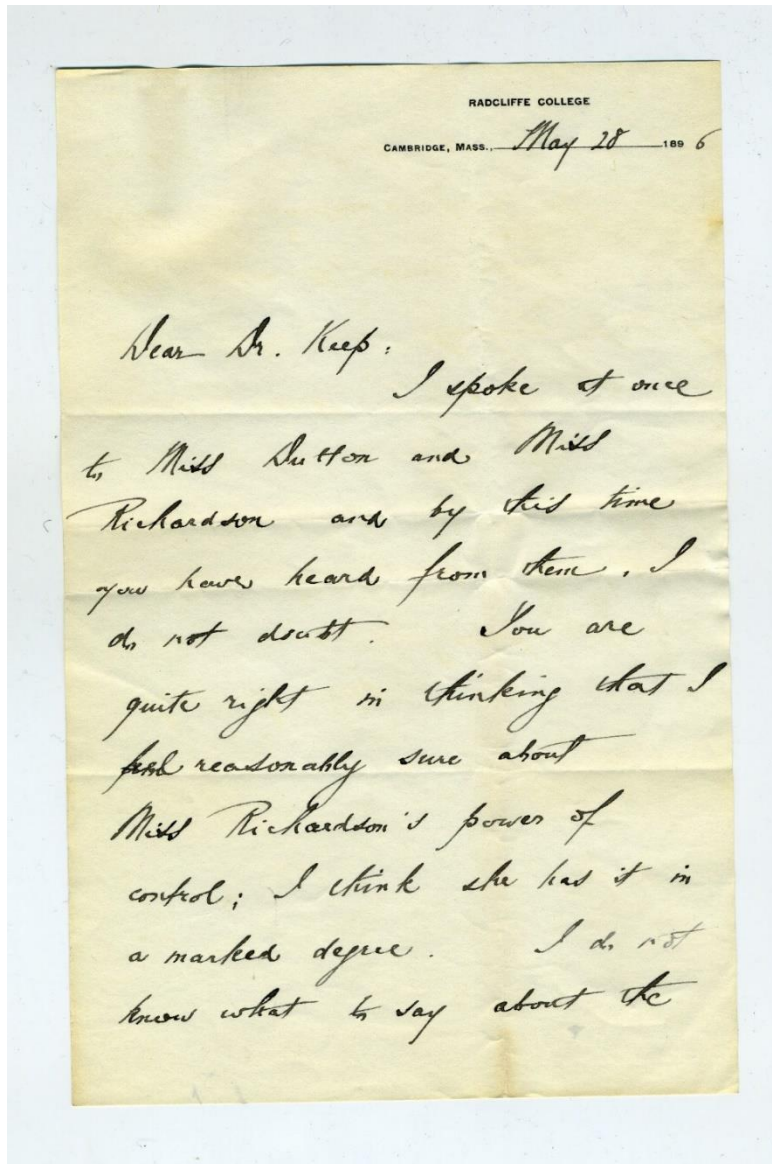 RADCLIFFE COLLEGE
CAMBRIDGE, MASS., May 28 1896
Dear Dr. Keep:
I spoke at once
to Miss Dutton and Miss
Richardson and by this time
you have heard from them, I
do not doubt. You are
quite right in thinking that I
feel reasonably sure about
Miss Richardson's power of
control; I think she has it in
a marked degree. I do not
know what to say about the